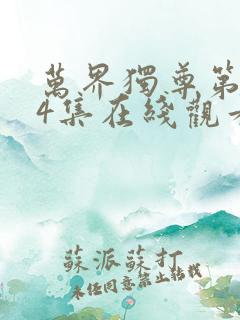 萬界獨尊第
4集在綫觀
蘇派蘇打
未經同意禁止轉載